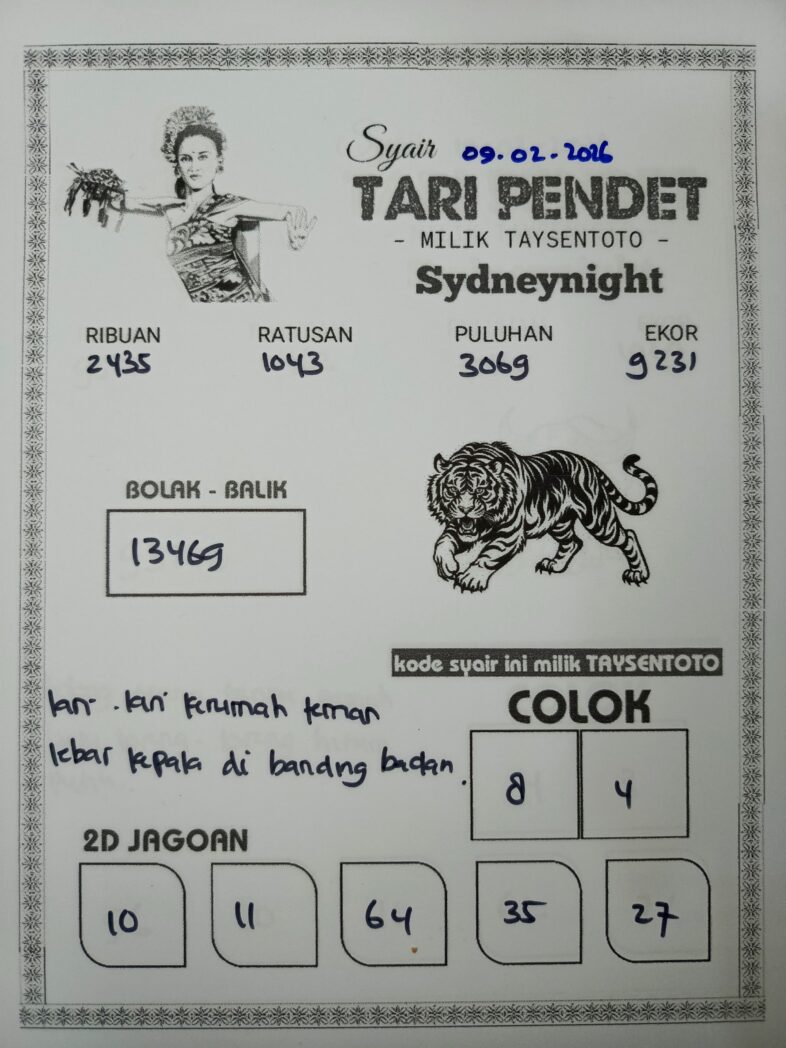 Syair 09.02.2026
TARI PENDET
- MILIK TAYSENTOTO -
Sydneynight
RIBUAN RATUSAN PULUHAN EKOR
2435 1043 3069 9231
BOLAK - BALIK
13469
kode syair ini milik TAYSENTOTO
lari-lari kerumah teman
lebar kepala di banding badan.
COLOK
8 4
2D JAGOAN
10 11 64 35 27